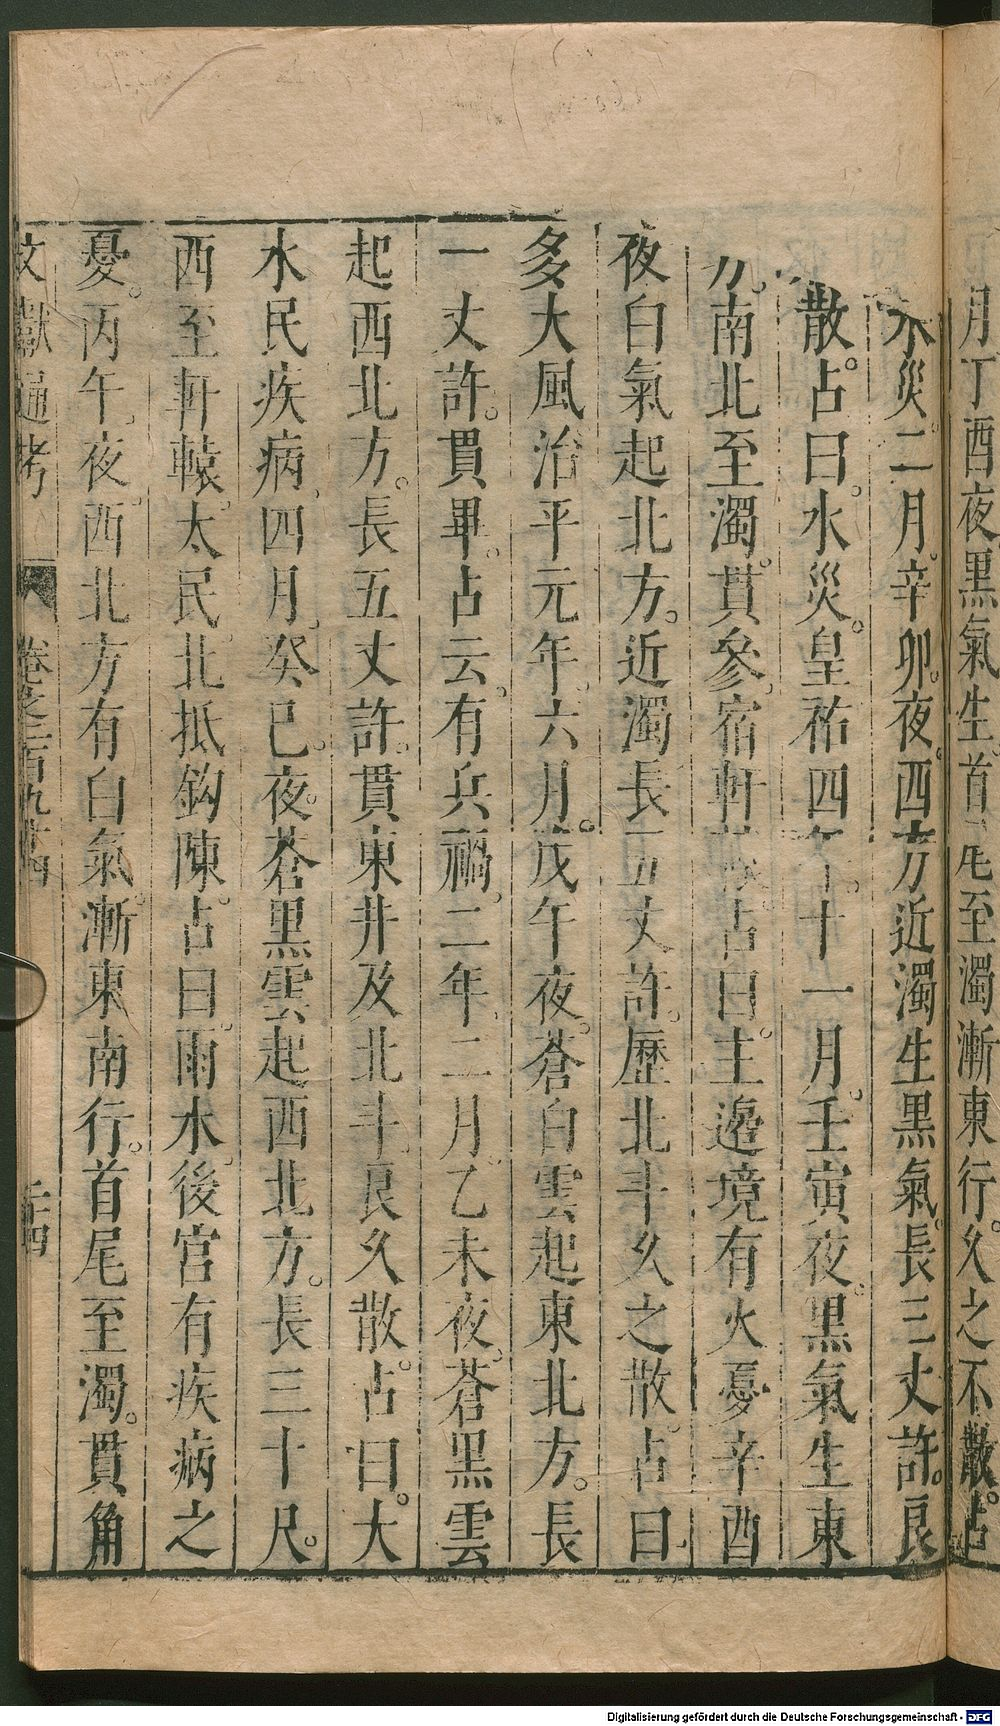 月丁酉夜黑氣生首尾至濁漸東行。久之不散。占
水災二月。辛卯夜。西方近濁生黑氣。長三丈許。良
散。占曰。水災。皇祐四年。十一月。壬寅夜。黑氣生東
方。南北至濁。貫參宿軒轅。占曰。主邊境有火憂辛酉
夜白氣起北方。近濁長五丈許。歷北斗久之散。占曰
多大風治平元年。六月。戊午夜。蒼白雲起東北方。長
一丈許。貫畢。占云。有兵禍。二年。二月乙未夜。蒼黑雲
起西北方。長五丈許。貫東井及北斗。良久散。占曰。大
水民疾病。四月。癸巳。夜。蒼黑雲起西北方。長三十尺。
西至軒轅。太民。北抵鈎陳。占曰。雨水。後宮有疾病之
憂。丙午。夜。西北方有白氣。漸東南行。首尾至濁。貫角
文獻通考 卷之二百九十四 二十四
Digitalisierung gefördert durch die Deutsche Forschungsgemeinschaft - DFG